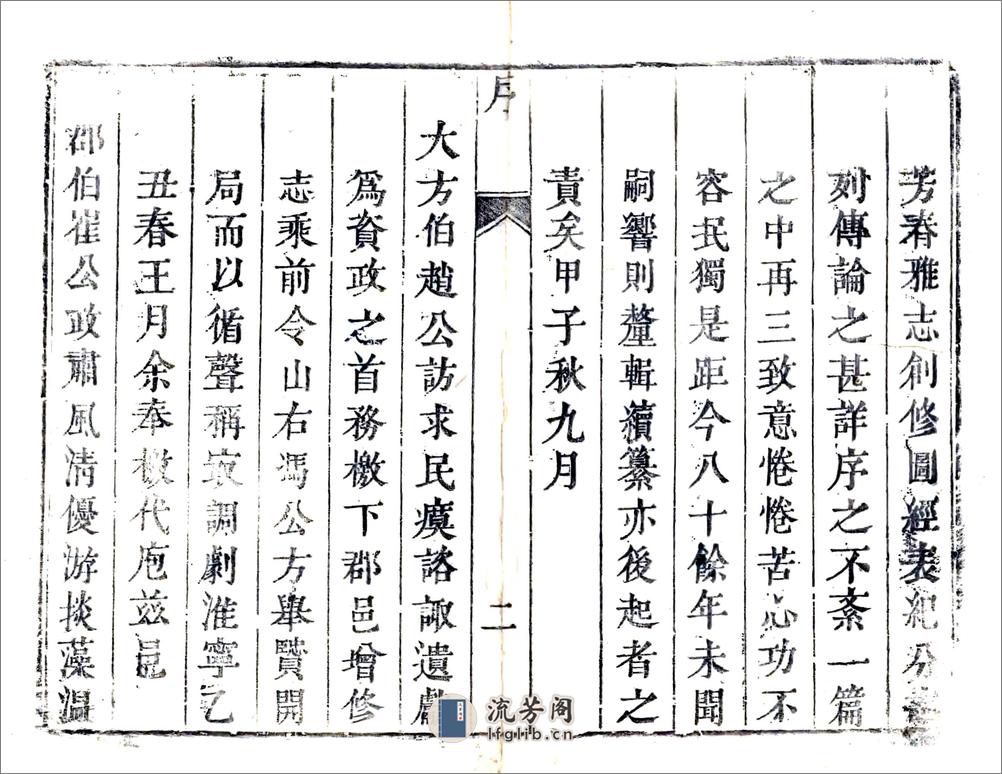 芳春雅志創修圖經表紀分
列傳論之甚詳序之不紊一篇
之中再三致意惓惓苦心功不
容民獨是距今八十餘年未聞
嗣響則釐輯續纂亦後起者之
責矣甲子秋九月
序
二
大方伯趙公訪求民瘼諮諏遺獻
爲資政之首務檄下郡邑增修
志乘前令山右馮公方舉賢開
局而以循聲稱最調劇淮寧乙
丑春王月余奉檄代庖兹邑
郡伯崔公政肅風清優游掞藻溫
流芳阁
lfglib.cn